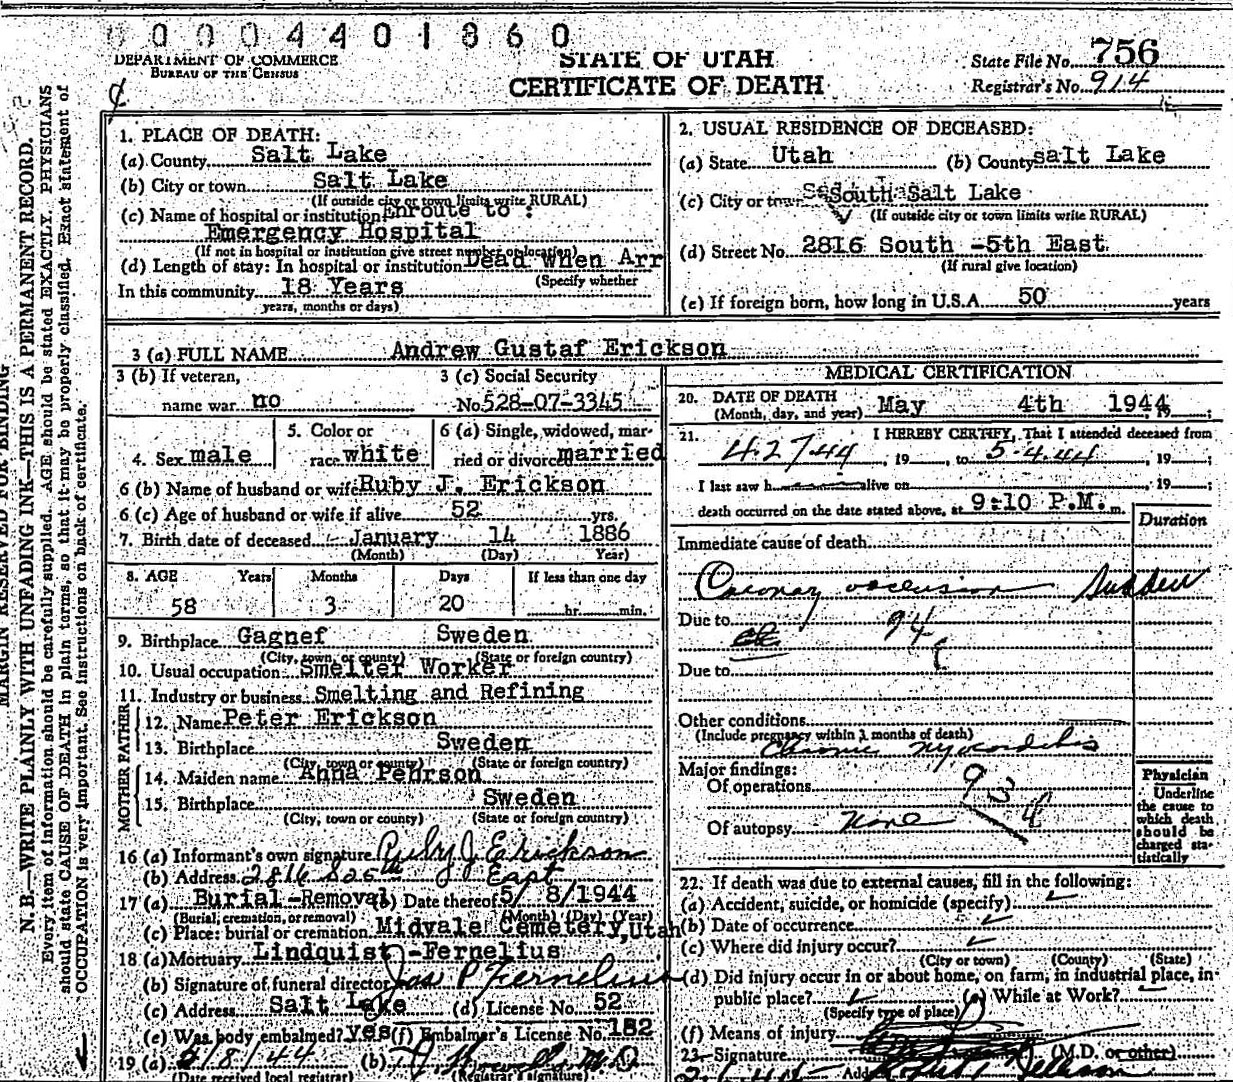 0000 4401860
DEPARTMENT OF COMMERCE
BUREAU OF THE CENSUS
STATE OF UTAH
CERTIFICATE OF DEATH
State File No. 756
Registrar's No. 914
MARGIN RESERVED FOR BINDING
N. B.—WRITE PLAINLY WITH UNFADING INK—THIS IS A PERMANENT RECORD.
Every item of information should be carefully supplied. AGE should be stated EXACTLY. PHYSICIANS
should state CAUSE OF DEATH in plain terms, so that it may be properly classified. Exact statement of
OCCUPATION is very important. See instructions on back of certificate.
1. PLACE OF DEATH:
(a) County Salt Lake
(b) City or town Salt Lake
(If outside city or town limits write RURAL)
(c) Name of hospital or institution Enroute to :
Emergency Hospital
(If not in hospital or institution give street number or location)
(d) Length of stay: In hospital or institution Dead When Arr
(Specify whether
In this community 18 Years
years, months or days)
2. USUAL RESIDENCE OF DECEASED:
(a) State Utah (b) County Salt Lake
(c) City or town South Salt Lake
(If outside city or town limits write RURAL)
(d) Street No. 2816 South -5th East
(If rural give location)
(e) If foreign born, how long in U.S.A. 50 years
3 (a) FULL NAME Andrew Gustaf Erickson
3 (b) If veteran,
name war no
3 (c) Social Security
No. 528-07-3345
4. Sex male
5. Color or
race white
6 (a) Single, widowed, mar-
ried or divorced married
6 (b) Name of husband or wife Ruby J. Erickson
6 (c) Age of husband or wife if alive 52 yrs.
7. Birth date of deceased January 14 1886
(Month) (Day) Year)
8. AGE Years Months Days If less than one day
58 3 20 hr. min.
9. Birthplace Gagnef Sweden
(City, town, or county) (State or foreign country)
10. Usual occupation Smelter Worker
11. Industry or business Smelting and Refining
FATHER
12. Name Peter Erickson
13. Birthplace Sweden
(City, town or county) (State or foreign country)
MOTHER
14. Maiden name Anna Pehrson
15. Birthplace Sweden
(City, town or county) (State or foreign country)
16 (a) Informant's own signature Ruby J Erickson
(b) Address 2816 So 5th East
17 (a) Burial-Removal (b) Date thereof 5/ 8/1944
(Burial, cremation, or removal) (Month) (Day) (Year)
(c) Place: burial or cremation Midvale Cemetery, Utah
18 (a) Mortuary Lindquist -Fernelius
(b) Signature of funeral director Jas P Fernelius
(c) Address Salt Lake (d) License No. 52
(e) Was body embalmed? yes (f) Embalmer's License No. 182
19 (a) 5/8/44 (b) M.D.
(Date received local registrar) (Registrar's signature)
MEDICAL CERTIFICATION
20. DATE OF DEATH
(Month, day, and year) May 4th 1944
21. I HEREBY CERTIFY, That I attended deceased from
4.27.44, 19 , to 5-4.44, 19 ;
I last saw h alive on , 19 ;
death occurred on the date stated above, at 9:10 P.M. m.
Duration
Immediate cause of death
Coronary occlusion Sudden
Due to 94
Due to
Other conditions
(Include pregnancy within 3 months of death)
Chronic myocarditis
Major findings:
Of operations
93
Of autopsy none
Physician
Underline
the cause to
which death
should be
charged sta-
tistically
22. If death was due to external causes, fill in the following:
(a) Accident, suicide, or homicide (specify)
(b) Date of occurrence
(c) Where did injury occur?
(City or town) (County) (State)
(d) Did injury occur in or about home, on farm, in industrial place, in
public place? (e) While at Work?
(Specify type of place)
(f) Means of injury
23. Signature (M.D. or other)